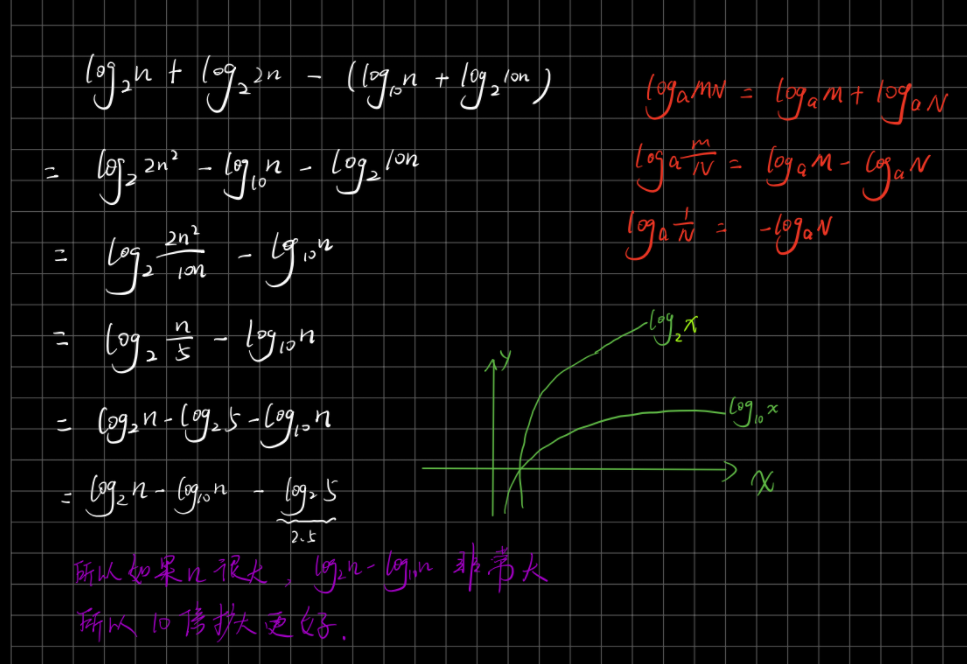 log₂n + log₂2n - (log₁₀n + log₂10n)
= log₂2n² - log₁₀n - log₂10n
= log₂ 2n²/10n - log₁₀n
= log₂ n/5 - log₁₀n
= log₂n - log₂5 - log₁₀n
= log₂n - log₁₀n - log₂5
2.5
所以如果n很大, log₂n - log₁₀n 非常大
所以 10倍扩大更好.
logₐMN = logₐM + logₐN
logₐ M/N = logₐM - logₐN
logₐ 1/N = -logₐN
y
log₂x
log₁₀x
x